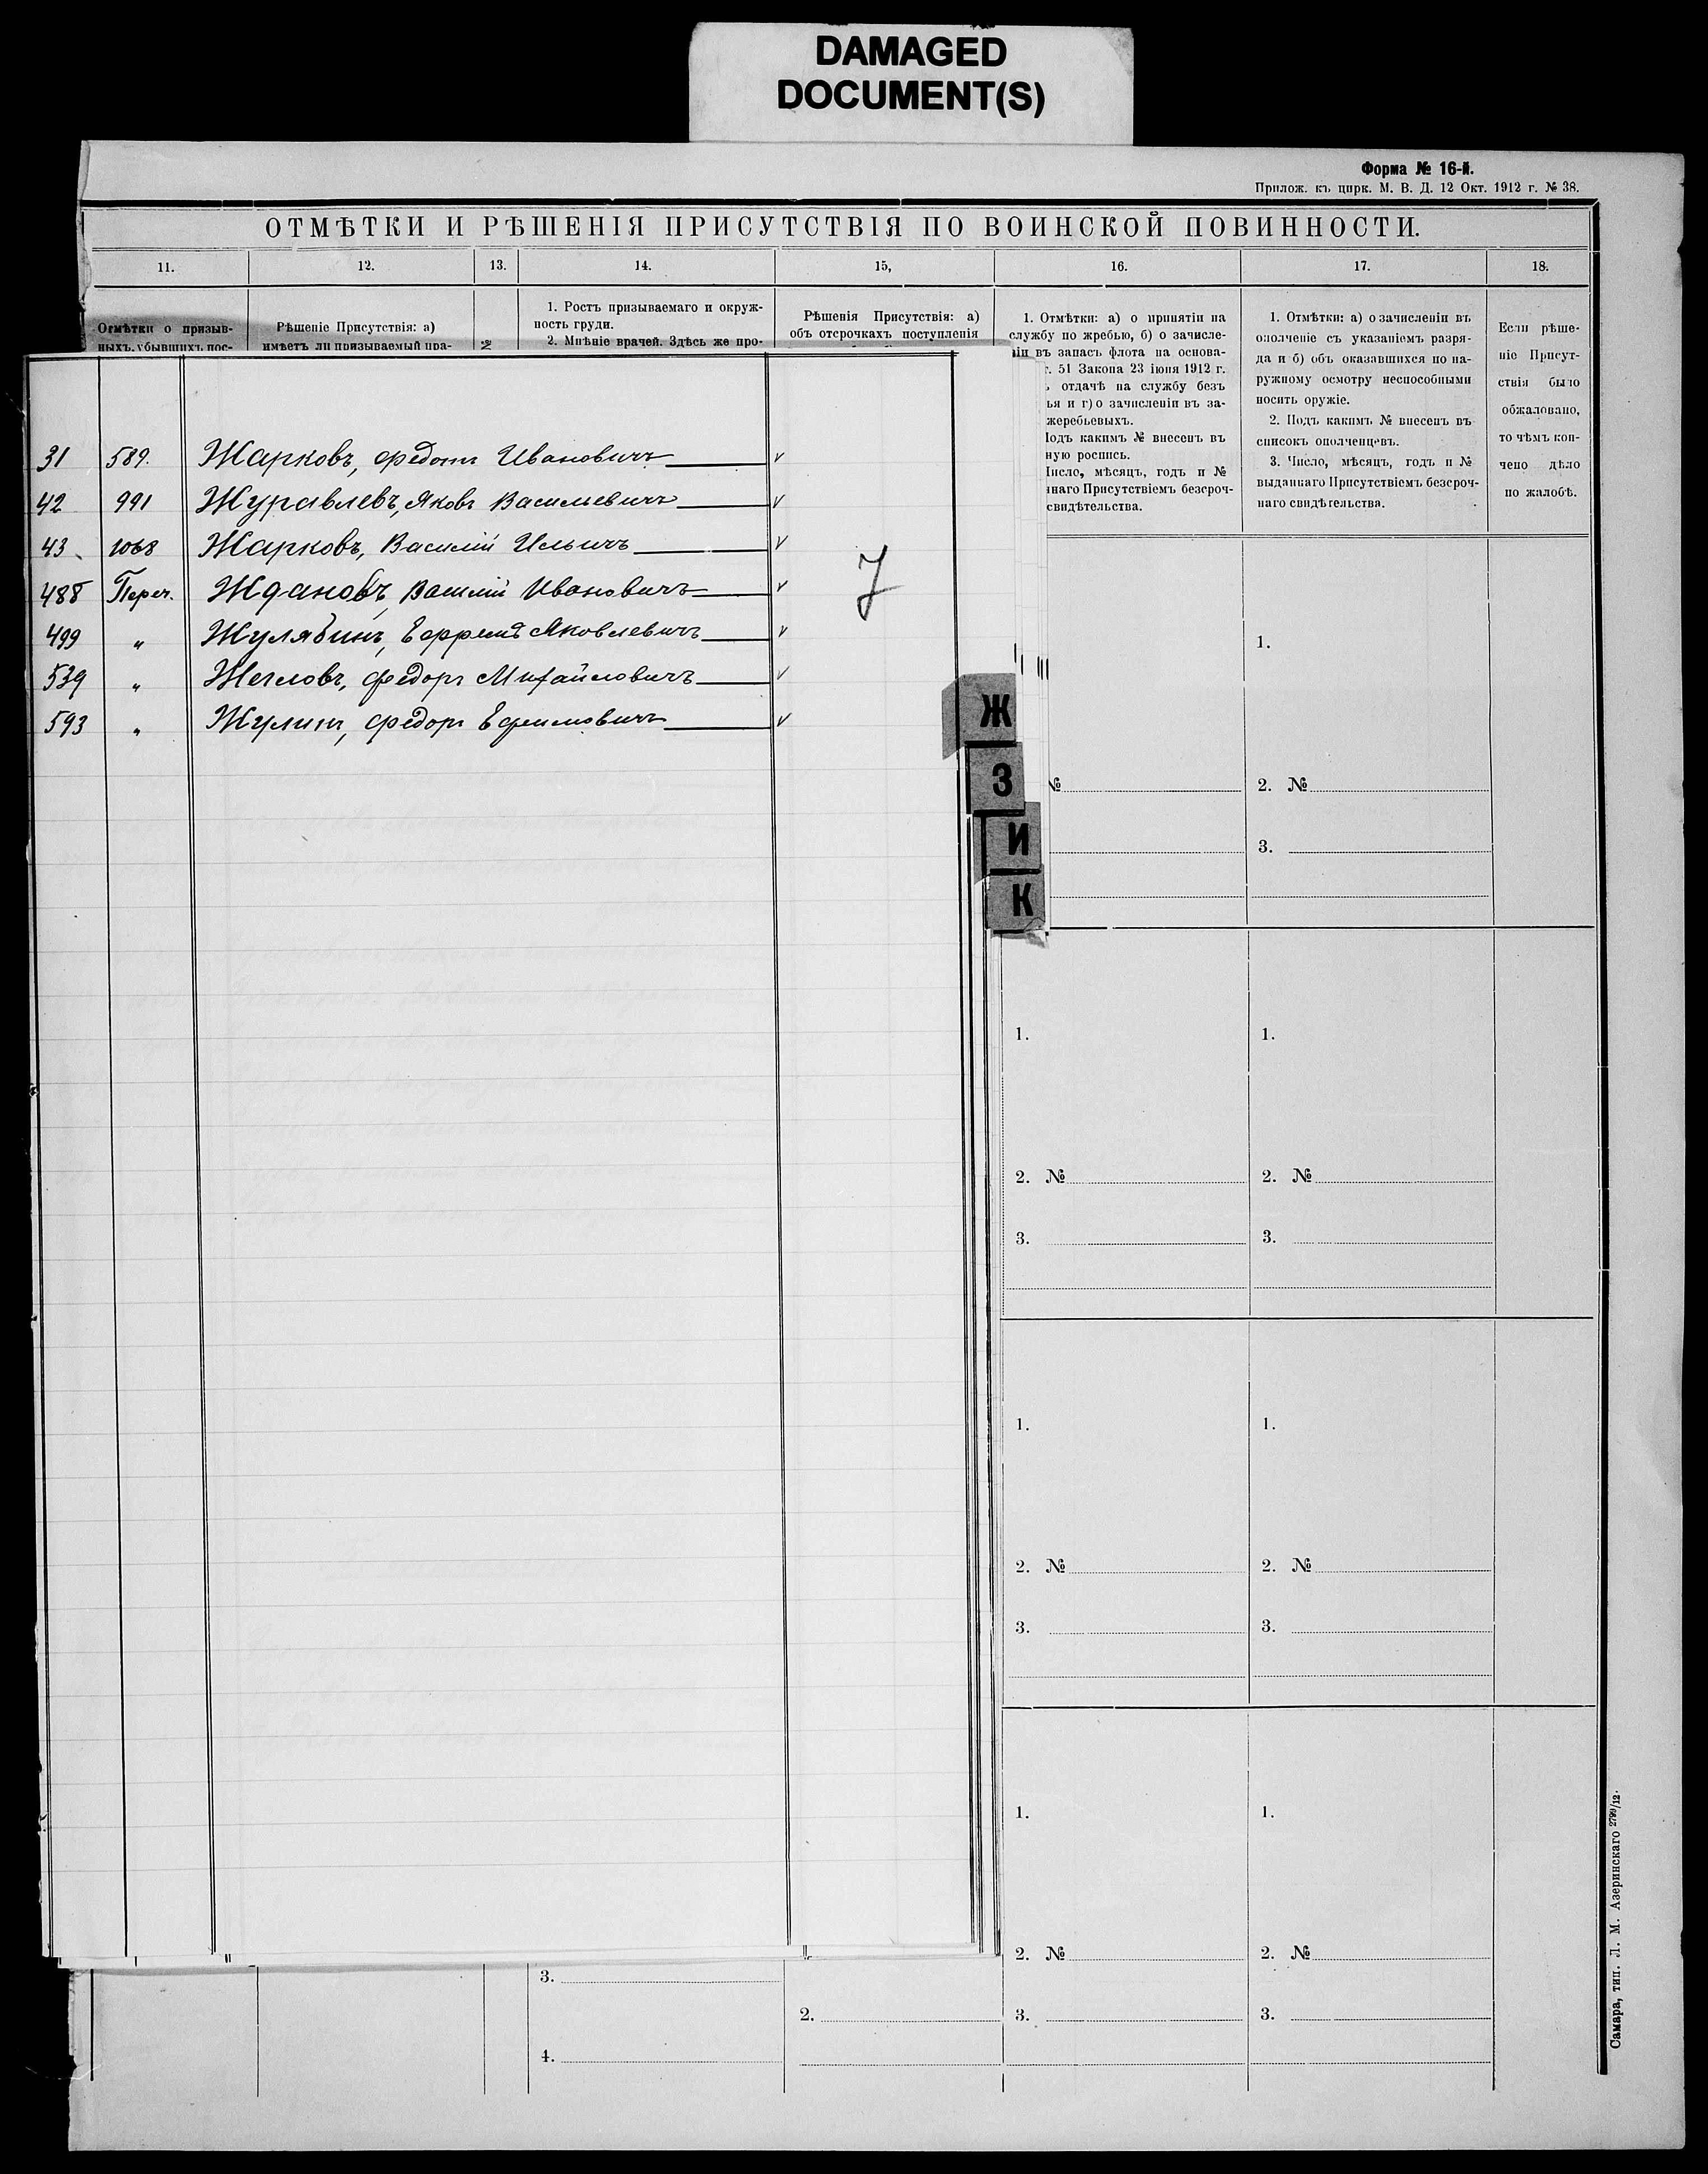 DAMAGED
DOCUMENT(S)
Форма № 16-й.
Прилож. къ цирк. М. В. Д. 12 Окт. 1912 г. № 38.
ОТМѢТКИ И РѢШЕНІЯ ПРИСУТСТВІЯ ПО ВОИНСКОЙ ПОВИННОСТИ.
11. 12. 13. 14. 15, 16. 17. 18.
Отмѣтки о призыв-
ныхъ, убывшихъ пос-
Рѣшеніе Присутствія: а)
имѣетъ ли призываемый пра-
№
1. Ростъ призываемаго и окруж-
ность груди.
2. Мнѣніе врачей. Здѣсь же про-
Рѣшенія Присутствія: а)
объ отсрочкахъ поступленія
1. Отмѣтки: а) о принятіи на
службу по жребью, б) о зачисле-
ніи въ запасъ флота на основа-
г. 51 Закона 23 іюня 1912 г.
отдачѣ на службу безъ
ья и г) о зачисленіи въ за-
жеребьевыхъ.
Подъ какимъ № внесенъ въ
ную роспись.
Число, мѣсяцъ, годъ и №
наго Присутствіемъ безсроч-
свидѣтельства.
1. Отмѣтки: а) о зачисленіи въ
ополченіе съ указаніемъ разря-
да и б) объ оказавшихся по на-
ружному осмотру неспособными
носить оружіе.
2. Подъ какимъ № внесенъ въ
списокъ ополченцевъ.
3. Число, мѣсяцъ, годъ и №
выданнаго Присутствіемъ безсроч-
наго свидѣтельства.
Если рѣше-
ніе Присут-
ствія было
обжаловано,
то чѣмъ кон-
чено дѣло
по жалобѣ.
31 589. Жарковъ, Федотъ Ивановичъ
42 991 Журавлевъ, Яковъ Васильевичъ
43 1068 Жарковъ, Василій Ильичъ
488 Переч. Ждановъ, Василій Ивановичъ
499 " Жулябинъ, Ефремъ Яковлевичъ
539 " Жегловъ, Федоръ Михайловичъ
593 " Жулинъ, Федоръ Ефимовичъ
7
Ж
З
И
К
1.
№ 2. №
3.
1. 1.
2. № 2. №
3. 3.
1. 1.
2. № 2. №
3. 3.
1. 1.
2. № 2. №
3.
2. 3. 3.
4.
Самара, тип. Л. М. Азеринскаго 2799/12.